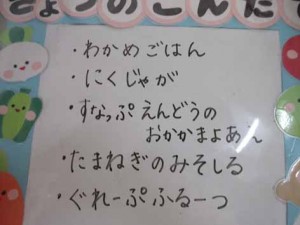 きょうのこんだて
・わかめごはん
・にくじゃが
・すなっぷえんどうの
おかかまよあえ
・たまねぎのみそしる
・ぐれーぷふるーつ